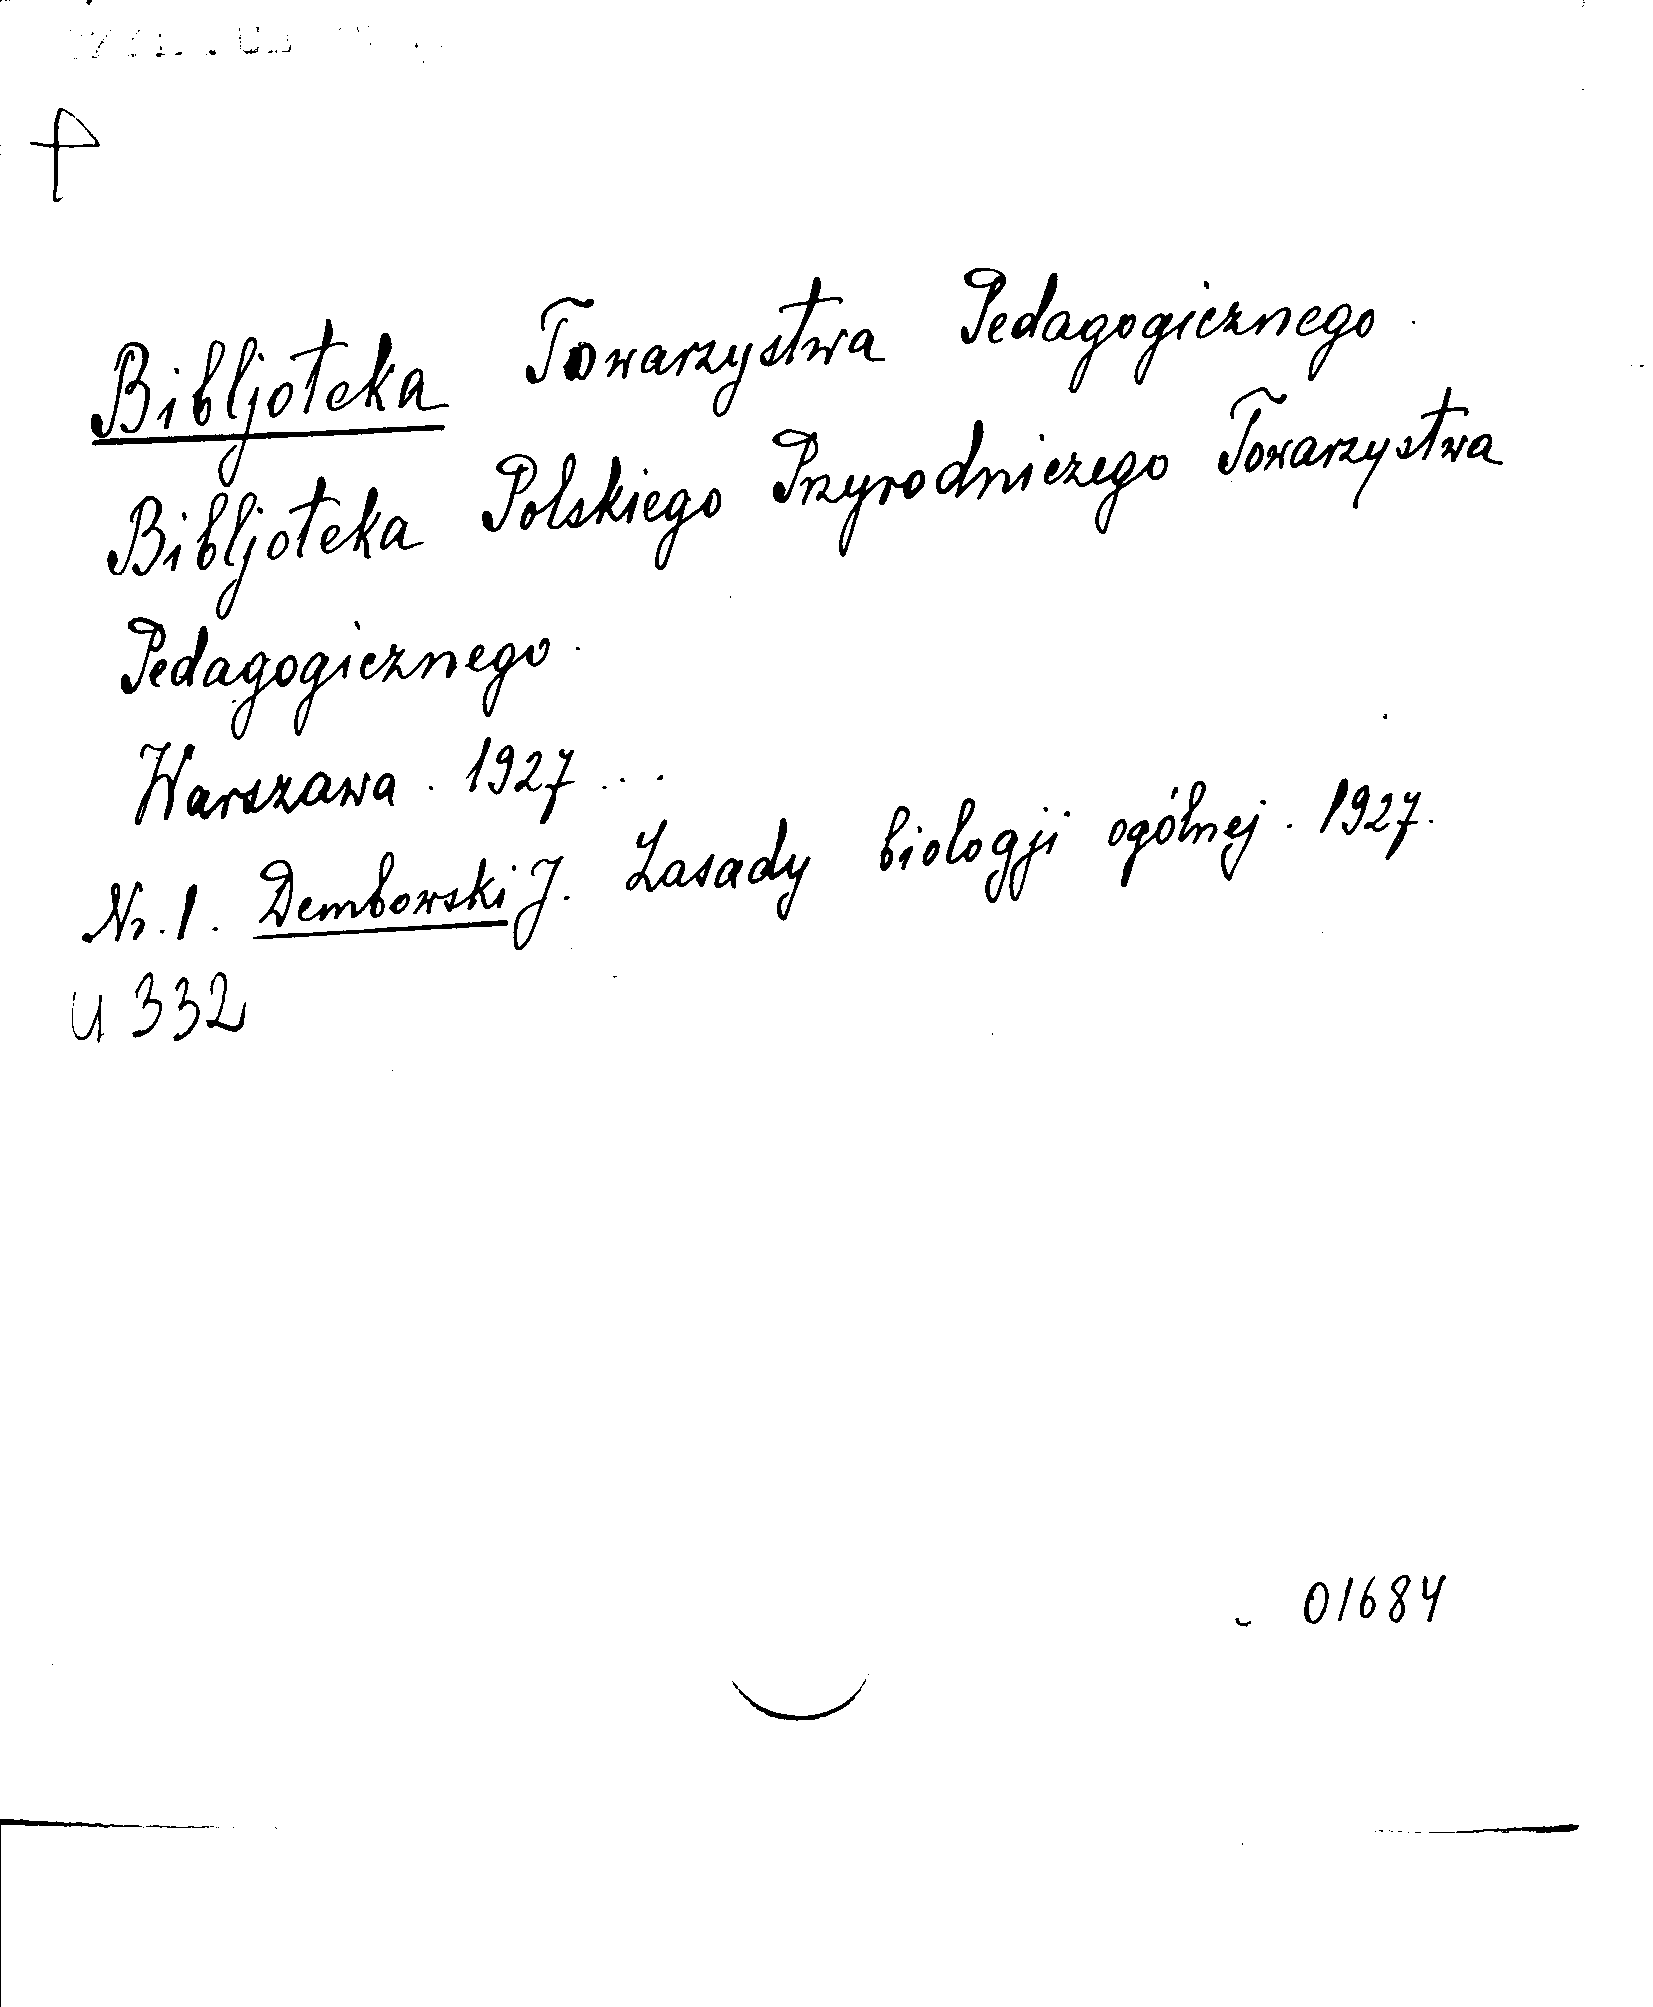 Bibljoteka Towarzystwa Pedagogicznego.
Bibljoteka Polskiego Przyrodniczego Towarzystwa
Pedagogicznego.
Warszawa. 1927...
Nr. 1. Demborski J. Zasady biologji ogólnej. 1927.
U 332
01684